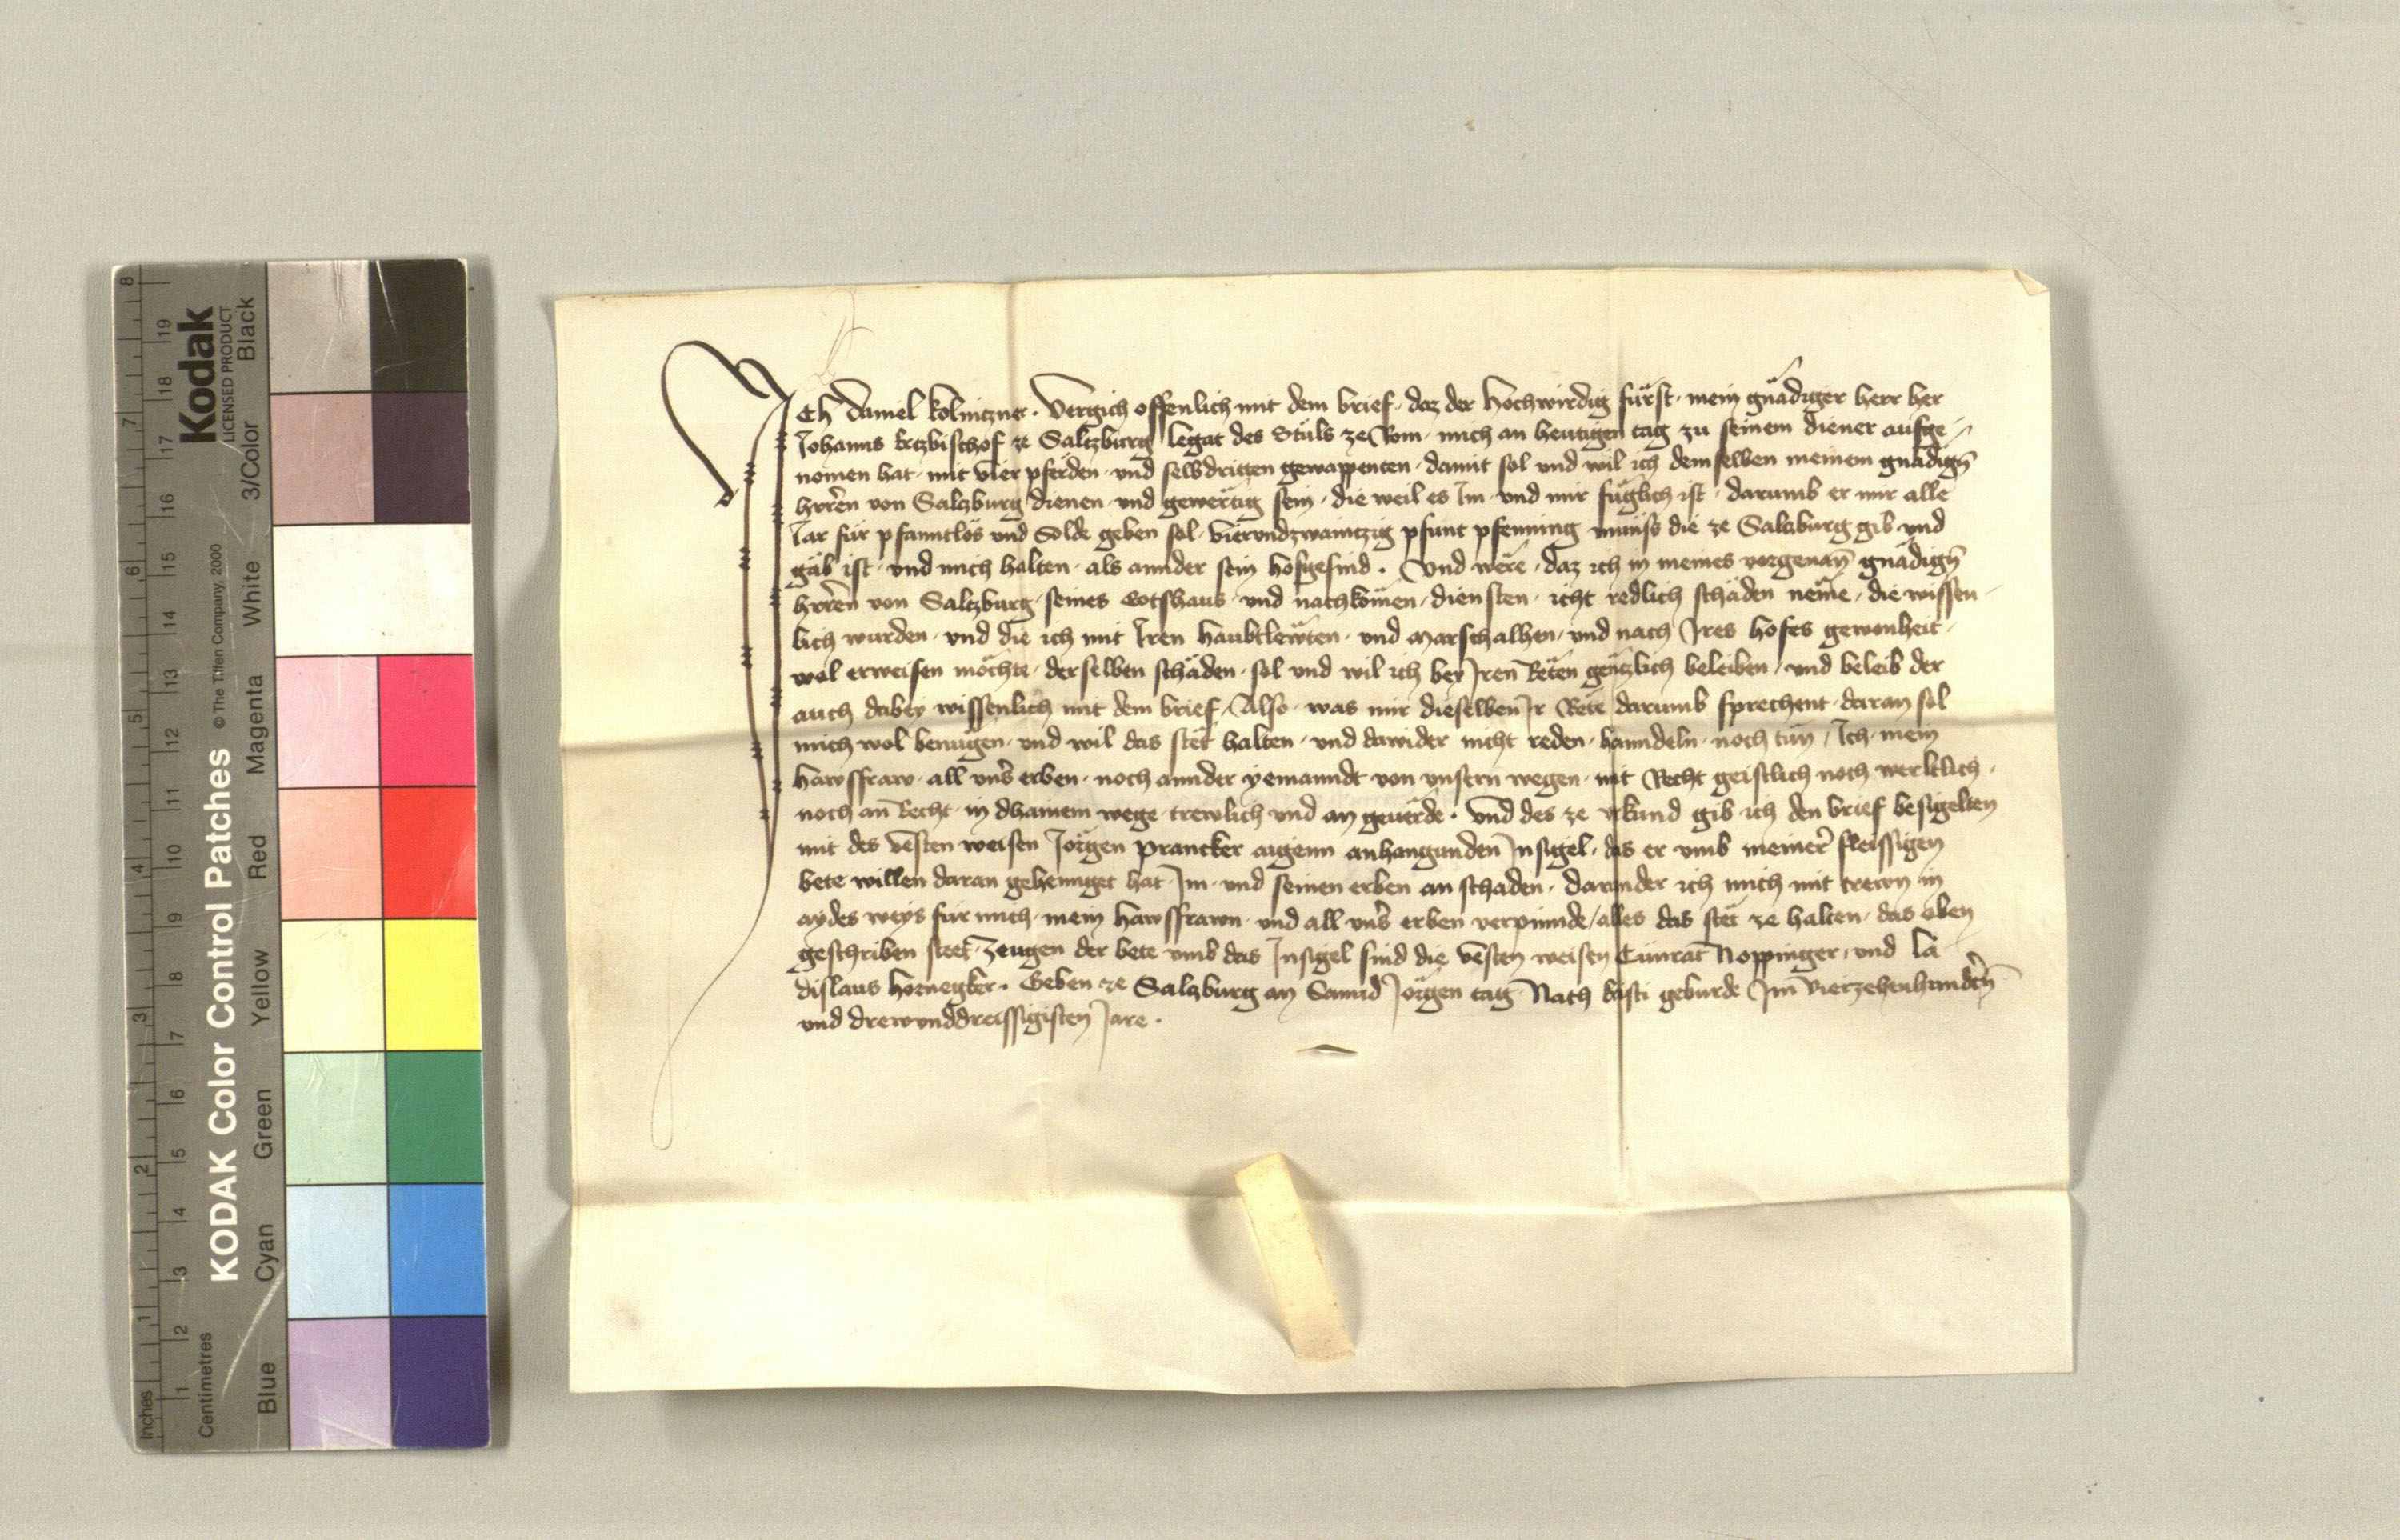 Ich Daniel Kolniczner. Vergich offenlich mit dem brief. daz der Hochwirdig fürst. mein gnädiger herr her
Johanns Ertzbischof ze Saltzburg legat des Stůls ze Rom. mich an heutigen tag zu seinem diener aufge-
nomen hat. mit vier pferden. und selbdritten gewappenten. damit sol und wil ich demselben meinem gnädign̄
herr̄en von Salzburg dienen. und gewërtig sein. die weil es Im und mir füglich ist. darumb er mir alle
Jar für pfanntlös und Solde geben sol. vierundzwainczig pfunt pfenning münss die ze Salzburg gib und
gäb ist. vnd mich halten. als annder sein hofgesind. Vnd wëre. daz ich in meines vorgenan̄ gnädign̄
herr̄en von Saltzburg. seines Gotshaus. und nachkomen. diensten. icht redlich schäden neme. die wissen
lich wurden. und die ich mit Iren haubtlewten. und Marschalhen. und nach Ires hofes gewonheit.
wol erweisen möchte. derselben schäden. sol und wil ich bey Iren Reten gentzlich beleiben. und beleib der
auch dabey wissenlich mit dem brief. Also. was mir dieselben Ir Rete darumb sprechent. daran sol
mich wol benugen. und wil das stët halten. und dawider nicht reden. hanndeln. noch tun. Ich. mein
hawsfraw. all uns̄ erben. noch annder yemanndt von unsern wegen. mit Recht geistlich noch werltlich.
noch an Recht. in dhainem wege. trewlich und an geuërde. Vnd des ze vrkund gib ich den brief besigelten
mit des vesten weisen Jörgen Prancker aigenn anhangunden Insigel. das er umb meiner fleissigen
bete willen daran gehennget hat. Im. und seinen erben an schaden. darunder ich mich mit trewn in
aydes weys für mich. mein hawsfrawn. und all uns̄ erben verpinnde. alles das stët ze halten. das oben
geschriben steet. Zeugen der bete umb das Insigel sind die vesten weisen Cünrat Noppinger. und La
dislaus Hornegker. Geben ze Salzburg an Sannd Jörgen tag. Nach kristi geburde Im Vierzehenhundertn̄
und drewunddreissigisten Jare.
KODAK Color Control Patches © The Tiffen Company, 2000
Kodak
LICENSED PRODUCT
Inches
Centimetres
Blue
Cyan
Green
Yellow
Red
Magenta
White
3/Color
Black
1 2 3 4 5 6 7 8
1 2 3 4 5 6 7 8 9 10 11 12 13 14 15 16 17 18 19